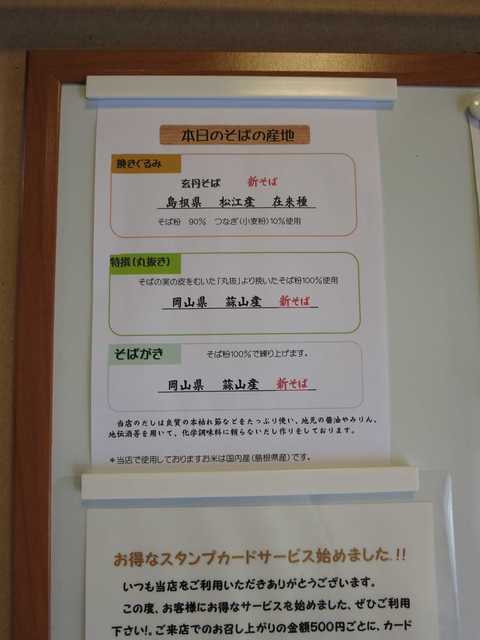 本日のそばの産地
挽きぐるみ
玄丹そば 新そば
島根県 松江産 在来種
そば粉 90% つなぎ(小麦粉)10%使用
特撰(丸抜き)
そばの実の皮をむいた「丸抜」より挽いたそば粉100%使用
岡山県 蒜山産 新そば
そばがき そば粉100%で練り上げます。
岡山県 蒜山産 新そば
当店のだしは良質の本枯れ節などをたっぷり使い、地元の醤油やみりん、
地伝酒等を用いて、化学調味料に頼らないだし作りをしております。
*当店で使用しておりますお米は国内産(島根県産)です。
お得なスタンプカードサービス始めました.!!
いつも当店をご利用いただきありがとうございます。
この度、お客様にお得なサービスを始めました、ぜひご利用
下さい!。ご来店でのお召し上がりの金額500円ごとに、カード